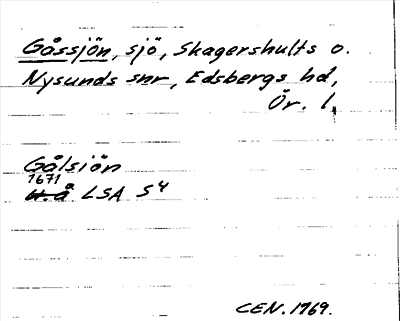 Gåssjön, sjö, Skagershults o.
Nysunds snr, Edsbergs hd,
Ör. l.
Gålsiön
1671
U.å LSA S4
CEN. 1969.